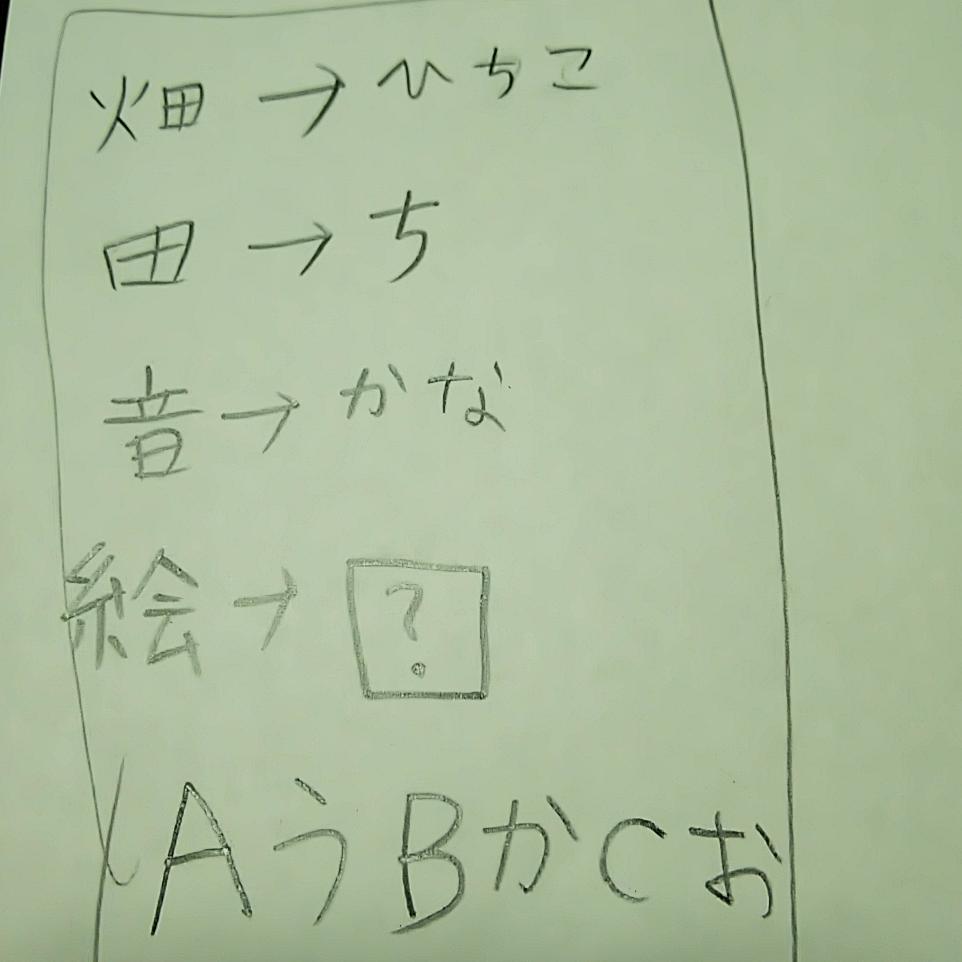 畑→ひちこ
田→ち
音→かな
絵→?
AうBかCお